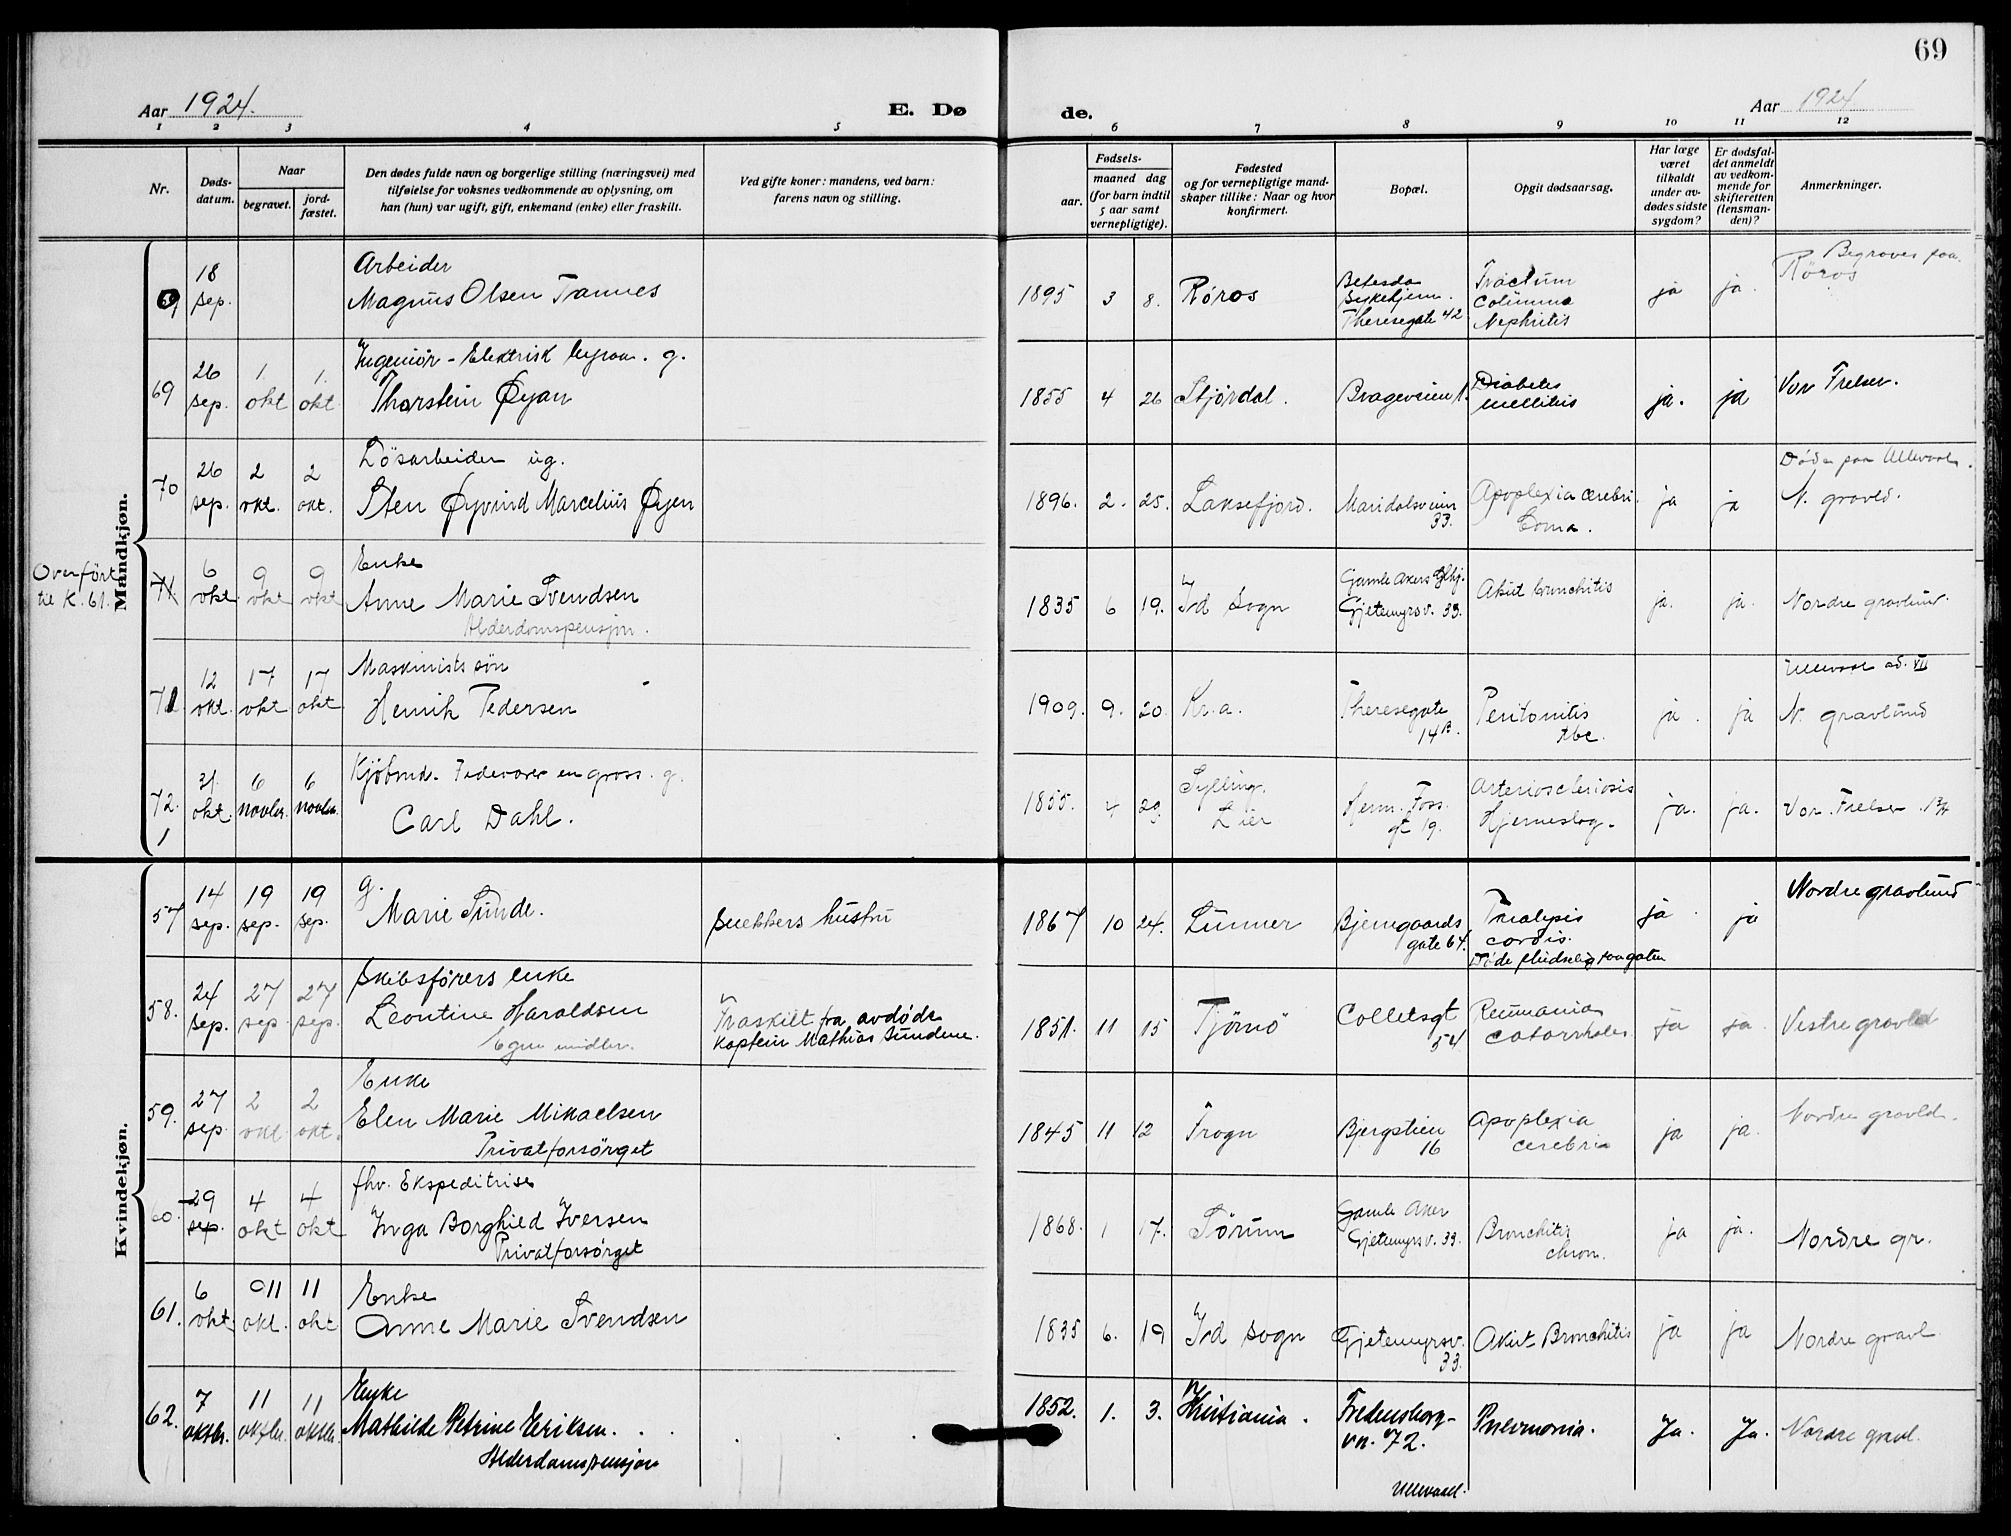 69
Aar 1924.
E. Dø de.
Aar 1924
1 2 3 4 5 6 7 8 9 10 11 12
Nr.
Døds-datum.
Naar
begravet.
jord-fæstet.
Den dødes fulde navn og borgerlige stilling (næringsvei) med
tilføielse for voksnes vedkommende av oplysning, om
han (hun) var ugift, gift, enkemand (enke) eller fraskilt.
Ved gifte koner: mandens, ved barn:
farens navn og stilling.
Fødsels-
aar.
maaned dag
(for barn indtil
5 aar samt
vernepligtige).
Fødested
og for vernepligtige mand-
skaper tillike: Naar og hvor
konfirmert.
Bopæl.
Opgit dødsaarsag.
Har læge
været
tilkaldt
under av-
dødes sidste
sygdom?
Er dødsfal-
det anmeldt
av vedkom-
mende for
skifteretten
(lensman-
den)?
Anmerkninger.
Mandkjøn.
18 sep.
Arbeider
Magnus Olsen Tamnes
1895 3 8. Røros
Betesda
Sykehjem.
Theresegate 42
Columna
Nephritis
ja ja.
Begraves paa
Røros
69 26 sep. 1 okt 1. okt
Ingeniør - Elektrisk byraa. g.
Thorstein Øyan
1855 4 26 Stjørdal.
Diabetes
mellitus
ja. ja
Vor Frelser.
70 26 sep. 2 okt. 2 okt.
Løsarbeider ug.
Sten Øyvind Marcelius Øyen
1896. 2. 25. Laksefjord.
Maridalsveien
33.
Apoplexia cerebri.
Coma.
ja ja
Døde paa Ullevaal.
N. gravld.
Overført
til K. 61.
71 6 okt. 9 okt 9 okt
Enke
Anne Marie Svendsen
Alderdomspensjon.
1835 6 19. Id sogn
Gamle Akers
Gjetemyrsv. 33.
Akut bronchitis
ja. ja.
Nordre gravlund.
71 12 okt. 17 okt 17 okt
Maskinists søn
Henrik Pedersen
1909. 9. 20. Kr.a.
Theresegate
14 B.
Peritonitis
tbc.
ja. ja
Ullevaal ad. VII
N. gravlund
72. 31. okt. 6 novbr. 6 novbr.
Kjøbmd. Fedevarer en gross. g.
Carl Dahl.
1855. 4 29.
Sylling.
Lier
Herm. Foss.
gt 19.
Arterioscleriosis
Hjerneslag.
ja. ja.
Vor. Frelser.
Kvindekjøn.
57 14 sep. 19 sep. 19 sep.
g.
Marie Sunde.
snekkers hustru
1867 10 24. Lunner
Bjerregaards
gate 64.
cordis.
Døde pludselig paa gaten
ja. ja
Nordre gravlund
58. 24 sep. 27 sep. 27 sep.
Skibsførers enke
Leontine Haraldsen
Egne midler.
Fraskilt fra avdøde
Kaptein Mathias Sundene.
1851. 11 15 Tjømø
Colletsgt
54
catarrhales
ja ja.
Vestre gravld
59. 27 sep. 2 okt. 2 okt.
Enke
Elen Marie Mikaelsen
Privatforsørget
1845 11 12 Frogn
Bjergstien
16
Apoplexia
cerebri
ja ja.
Nordre gravld.
60. 29 sep. 4 okt 4 okt
fhv. Ekspeditrise
Inga Borghild Iversen
Privatforsørget
1868. 1 17. Sørum
Gamle Aker
Gjetemyrsv. 33.
Bronchitis
chron.
ja ja.
Nordre gr.
61. 6 okt. 11 okt. 11 okt
Enke
Anne Marie Svendsen
1835 6. 19 Id sogn
Gjetemyrsv.
33.
Akut Bronchitis
ja ja
Nordre gravl
62. 7 oktbr. 11 oktbr. 11 oktbr.
Enke
Mathilde Petrine Eriksen.
Alderdomspensjon
1852. 1. 3. Kristiania.
Fredensborg-
vn. 72.
Ullevaal.
Pneumonia.
Ja. Ja.
Nordre gravl.